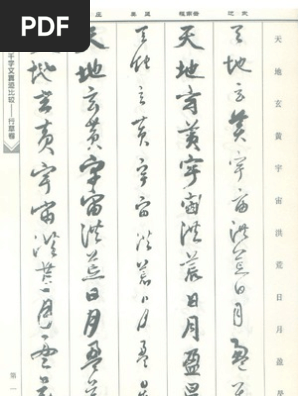 PDF
天地玄黃宇宙洪荒日月盈昃
天地玄黃宇宙洪荒日月盈昃
天地玄黃宇宙洪荒日月盈昃
天地玄黃宇宙洪荒日月盈昃
天地玄黃宇宙洪荒日月盈昃
地玄黃宇宙洪荒日月盈昃
千字文
第一